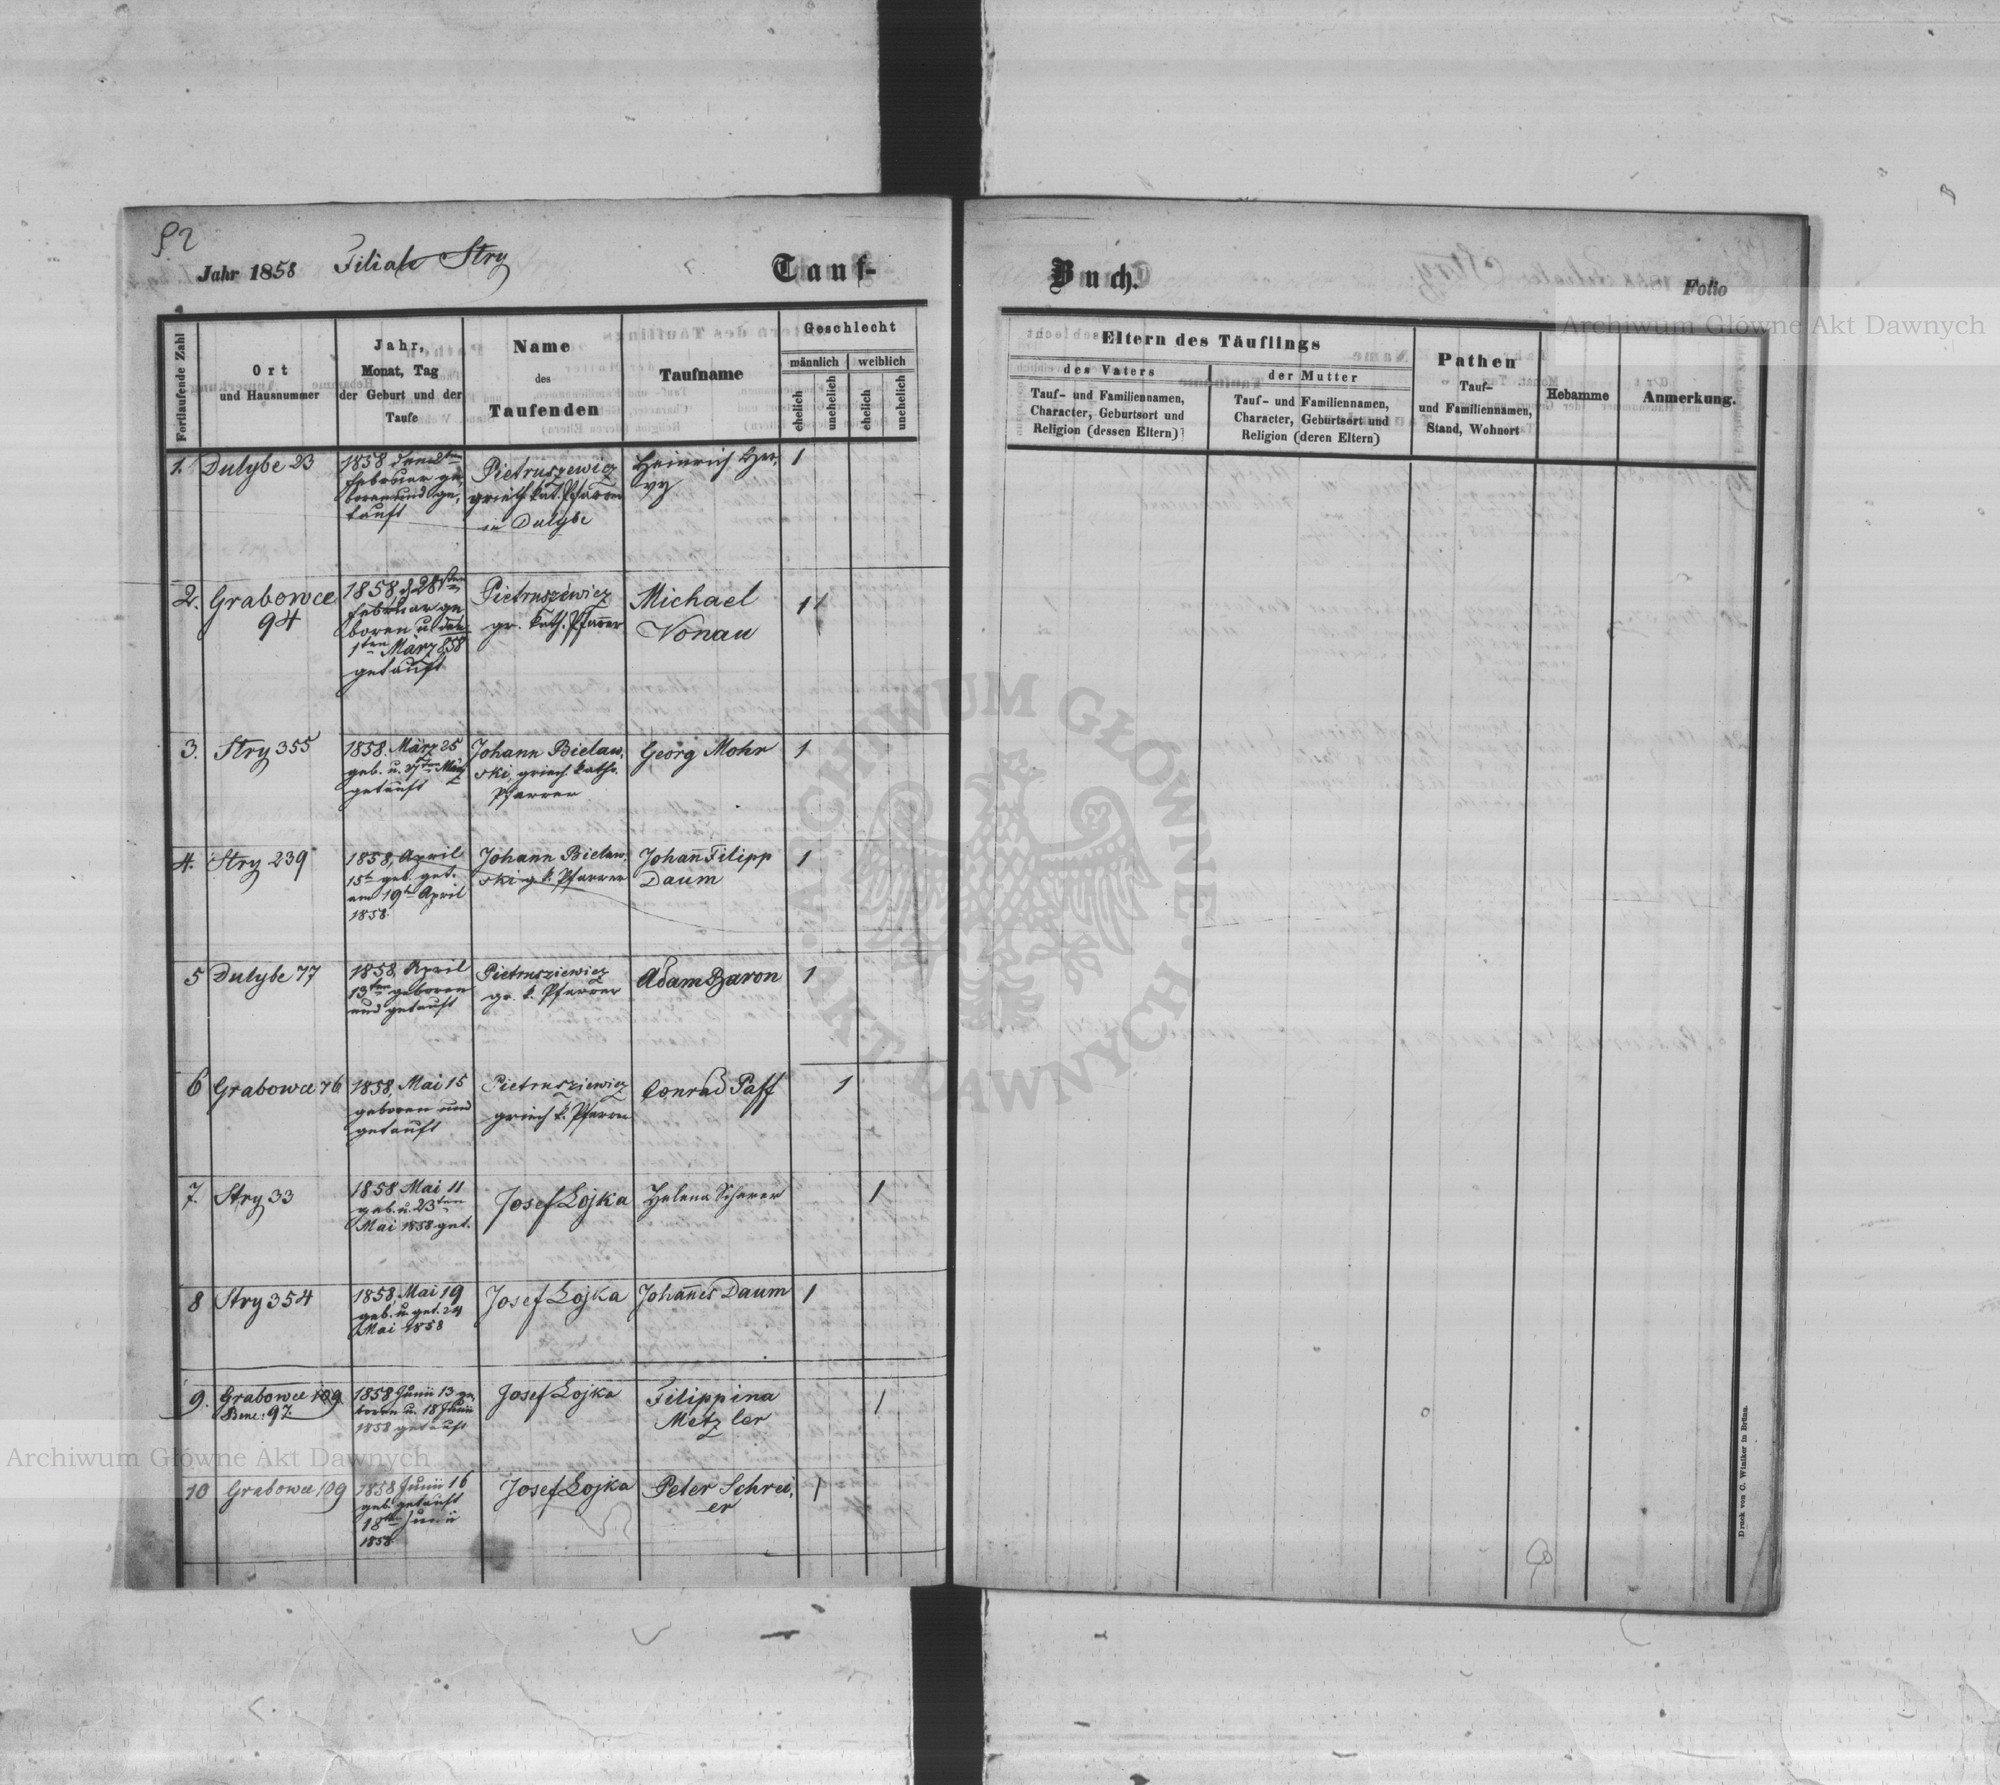 52
Jahr 1858 Filiale Stry Tauf-
Fortlaufende Zahl
Ort
und Hausnummer
Jahr,
Monat, Tag
der Geburt und der
Taufe
Name
des
Taufenden
Taufname
Geschlecht
männlich weiblich
ehelich
unehelich
ehelich
unehelich
1. Dulybe 23
1858 den
Februar ge,
boren und ge,
tauft
Pietruszewicz
griech. kat. Pfarrer
in Dulybe
Heinrich
2. Grabowce
94
1858, d 28ten
Februar ge
boren u. den
1ten März 858
getauft
Pietrusziewicz
gr. kath. Pfarer
Michael
Vonau
1
3. Stry 355
1858. März 25
geb. u. März
getauft
Johann Bielaw,
ski, griech. kath.
Pfarrer
Georg Mohr
1
4. Stry 239
1858, April
15t geb. get.
am 19t April
1858.
Johann Bielaw,
ski g. k. Pfarrer
Johann Filipp
Daum
1
5 Dulybe 77
1858, April
13ten geboren
und getauft
Pietrusziewicz
gr. k. Pfarrer
Adam Baron
1
6 Grabowce 76
1858, Mai 15
geboren und
getauft
Pietrusziewicz
griech k. Pfarrer
Conrad Paff
1
7. Stry 33
1858 Mai 11
geb. u. 23ten
Mai 1858 get.
Josef Lojka
Helena Scherer
1
8 Stry 354
1858, Mai 19
geb. u. get. 24
Mai 1858
Josef Lojka
Johannes Daum
1
9. Grabowce 109.
97.
1858 Junii 13 ge,
boren u. 18 Junii
1858 getauft
Josef Lojka
Filippina
Metzler
1
10 Grabowce 109
1858 Junii 16
geb. getauft
18ten Junii
1858.
Josef Lojka
Peter Schrei,
er
1
Buch.
Folio
Eltern des Täuflings
des Vaters
Tauf- und Familiennamen,
Character, Geburtsort und
Religion (dessen Eltern)
der Mutter
Tauf- und Familiennamen,
Character, Geburtsort und
Religion (deren Eltern)
Pathen
Tauf-
und Familiennamen,
Stand, Wohnort
Hebamme
Anmerkung.
Druck von C. Winiker in Brünn.
Archiwum Główne Akt Dawnych
Archiwum Główne Akt Dawnych
ARCHIWUM GŁÓWNE · AKT DAWNYCH ·